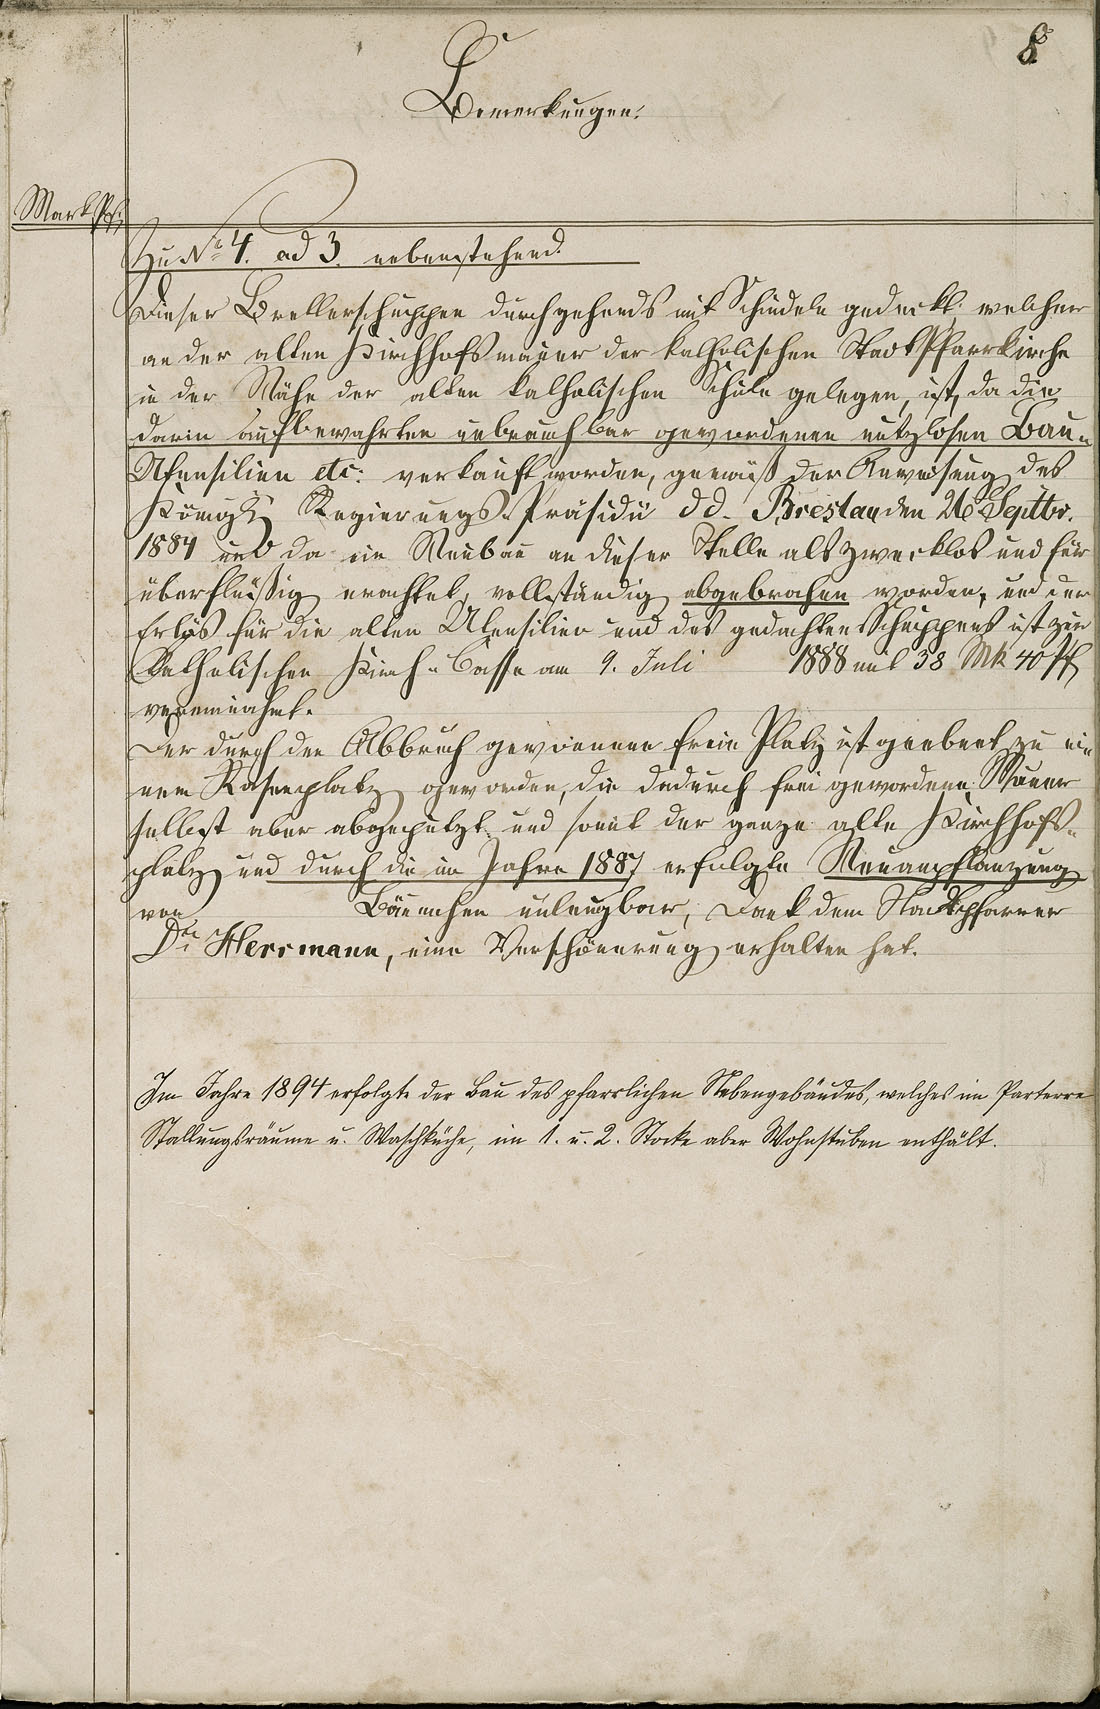 8
Bemerkungen.
Mark Pf.
Zu No 4. ad 3. nebenstehend.
Dieser Bretterschuppen durchgehends mit Schindeln gedeckt welcher
an der alten Kirchhofsmauer der katholischen Stadtpfarrkirche
in der Nähe der alten katholischen Schule gelegen, ist, da die
darin aufbewahrten unbrauchbar gewordenen nutzlosen Bau-
Utensilien etc: verkauft worden, gemäß der Anweisung des
Königl. Regierungs-Präsidii dd. Breslau den 26 Septbr.
1884 und da ein Neubau an dieser Stelle als zwecklos und für
überflüßig erachtet, vollständig abgebrochen worden, und der
Erlös für die alten Utensilien und des gedachten Schuppens ist zur
Katholischen Kirch-Casse am 9. Juli 1888 mit 38 Mk 40 Pf
vereinnahmt.
Der durch den Abbruch gewonnene freie Platz ist geebnet zu ei
nem Rasenplatz geworden, die dadurch frei gewordene Mauer
selbst aber abgeputzt und somit der ganze alte Kirchhofs-
platz und durch die im Jahre 1887 erfolgte Neuanpflanzung
von Bäumchen unleugbar, Dank dem Stadtpfarrer
Dr. Herrmann, eine Verschönerung erhalten hat.
Im Jahre 1894 erfolgte der Bau des pfarrlichen Nebengebäudes, welches im Parterre
Stallungsräume u. Waschküche, im 1. u. 2. Stocke aber Wohnstuben enthält.